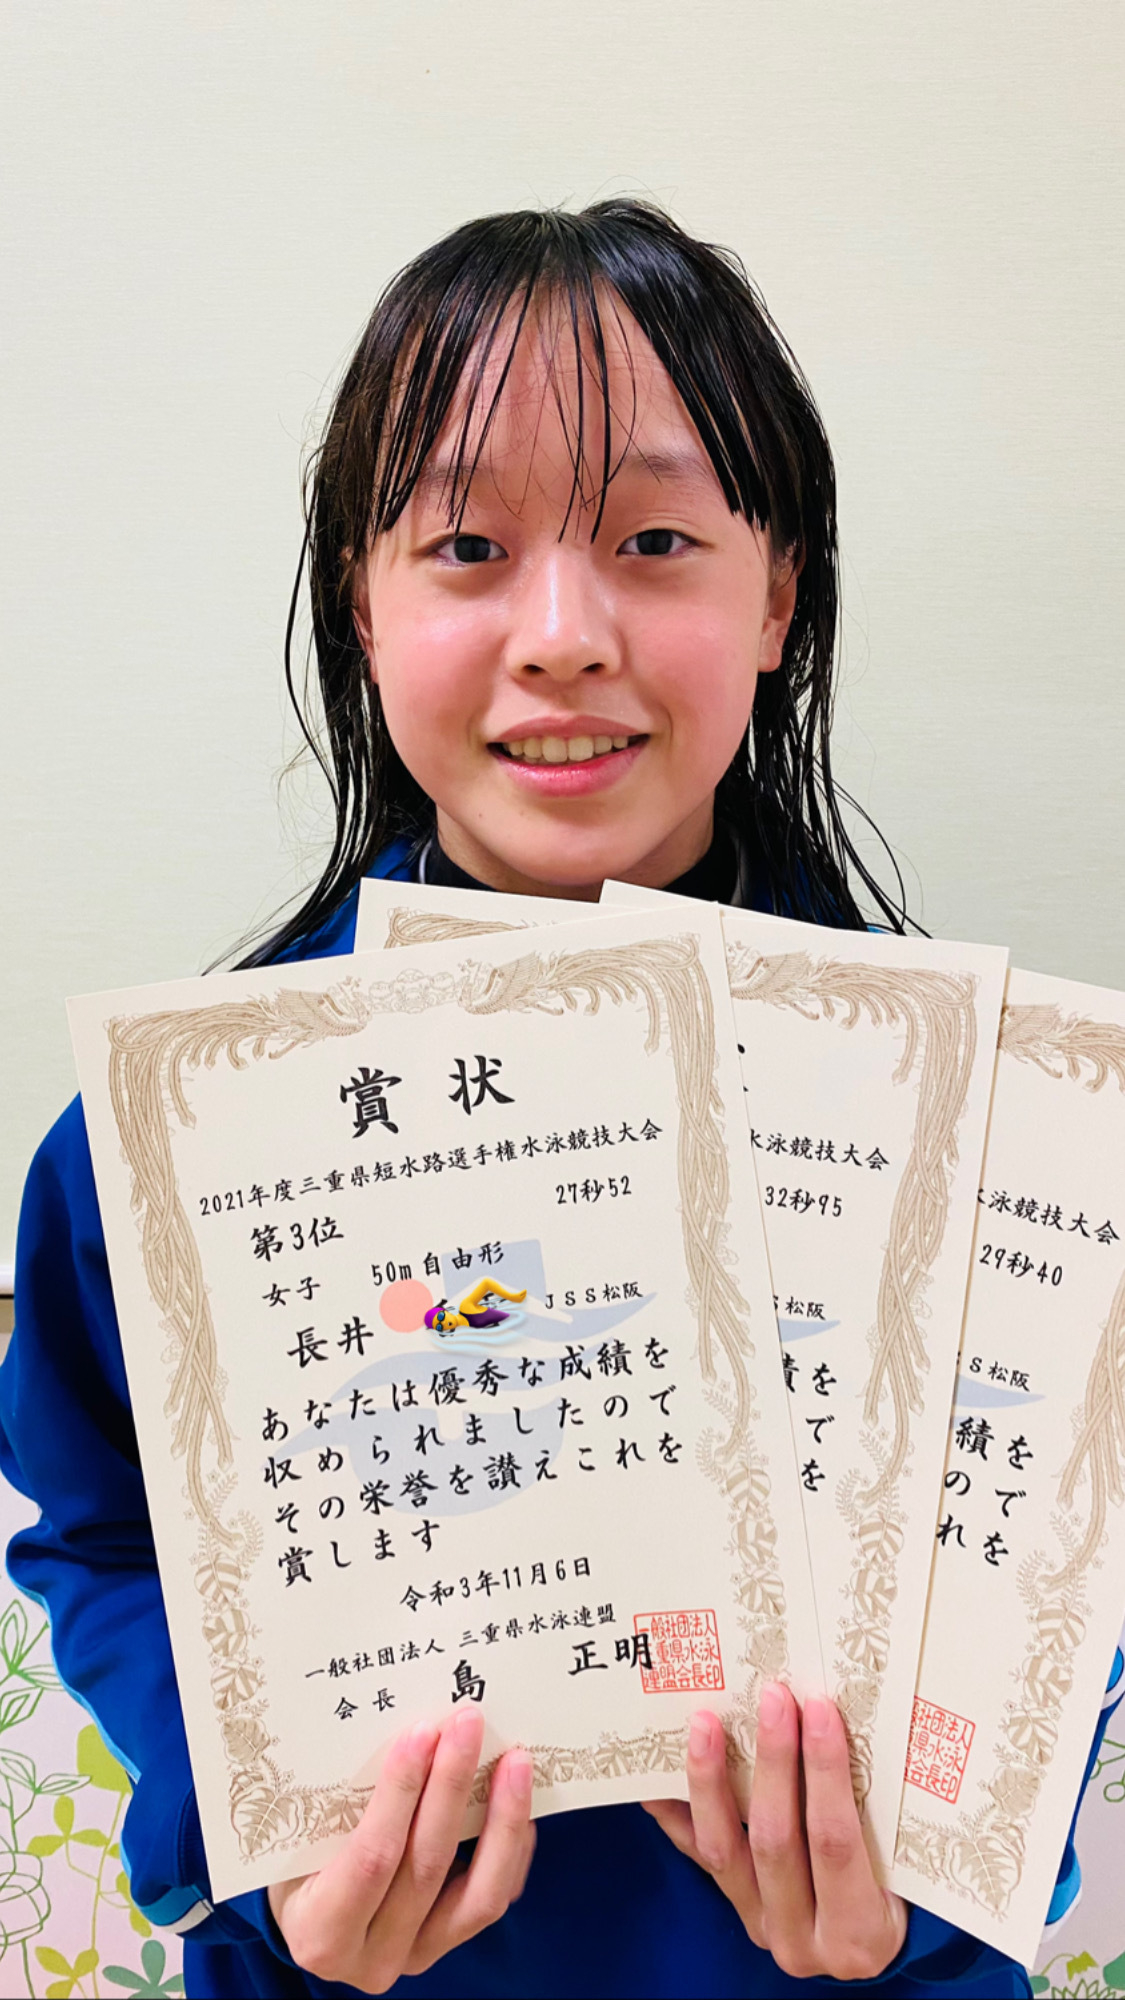 賞状
2021年度三重県短水路選手権水泳競技大会
第3位 27秒52
女子 50m自由形
長井 JSS松阪
あなたは優秀な成績を
収められましたので
その栄誉を讃えこれを
賞します
令和3年11月6日
一般社団法人 三重県水泳連盟
会長 島 正明
一般社団法人
三重県水泳
連盟会長印
水泳競技大会
32秒95
S松阪
績を
で
を
社団法人
県水泳
会長印
水泳競技大会
29秒40
SS松阪
績を
ので
れを